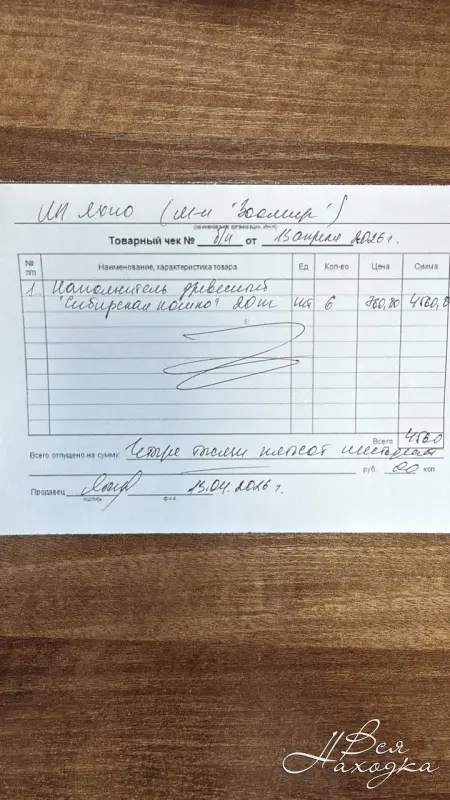 ИП Яхно (м-н "Зоомир")
(наименование организации, ИНН)
Товарный чек № б/н от 13 апреля 2026 г.
№ п/п Наименование, характеристика товара Ед Кол-во Цена Сумма
1. Наполнитель древесный
"Сибирская кошка" 20 шт 6 760,00 4560,0
Всего 4560
Всего отпущено на сумму: Четыре тысячи пятьсот шестьдесят
руб. 00 коп
Продавец 13.04.2026 г.
подпись ф.и.о.
Вся
Находка